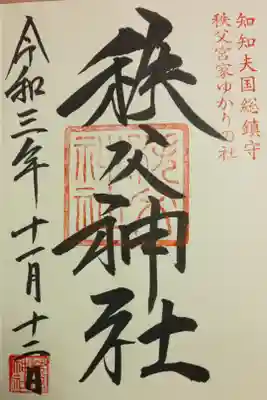 知知夫国総鎮守
秩父宮家ゆかりの社
秩父神社
令和三年十一月十二日